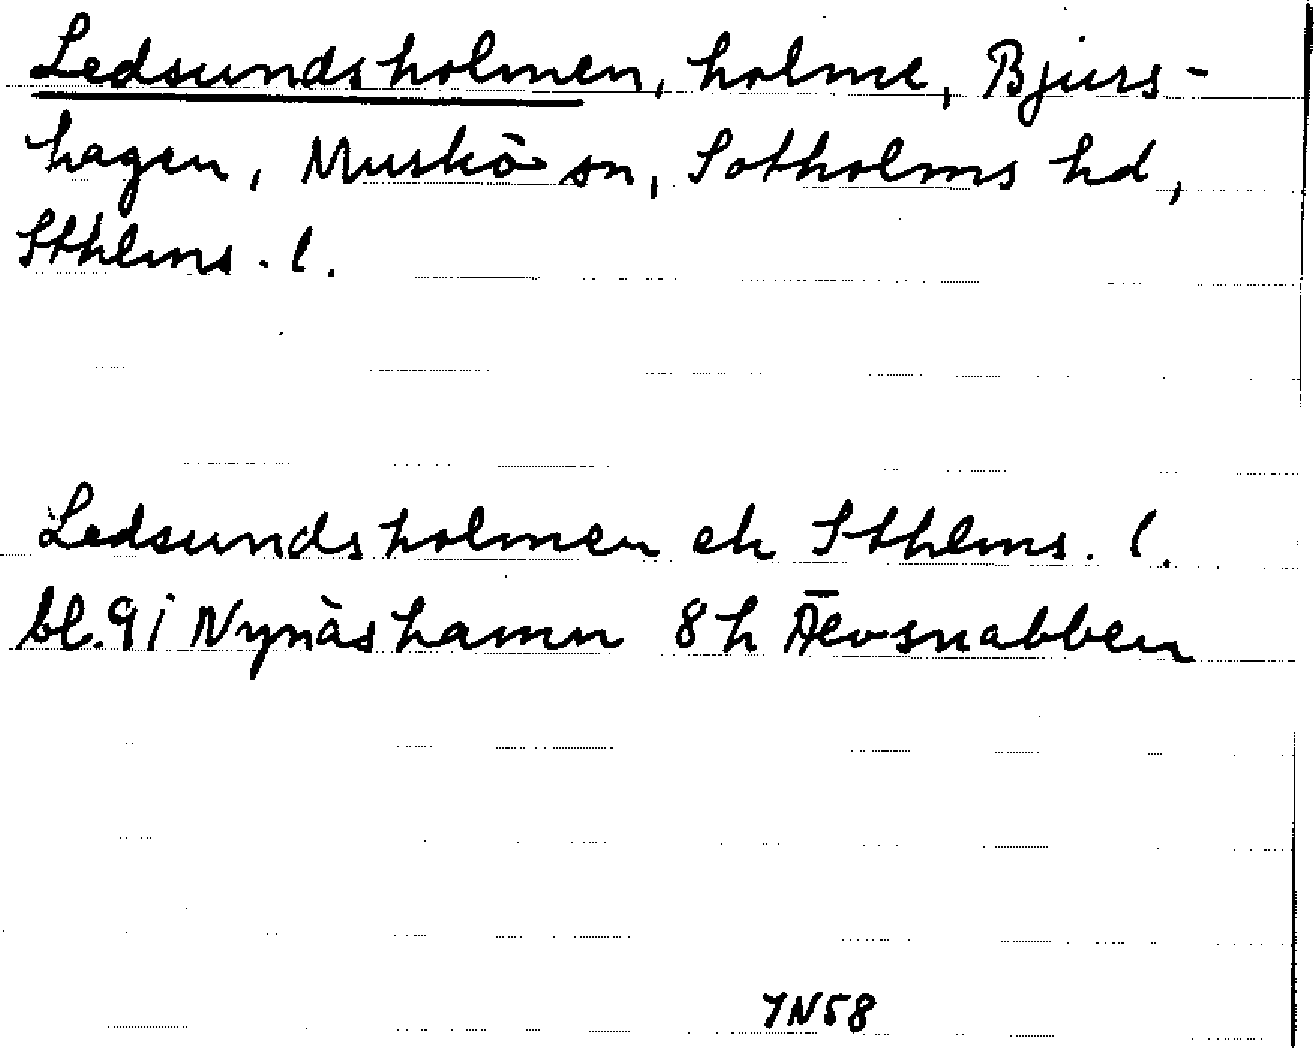 Ledsundsholmen, holme, Bjurs-
hagen, Muskö sn, Sotholms hd,
Sthlms. l.
Ledsundsholmen ek Sthlms. l.
bl. 9i Nynäshamn 8h Älvsnabben
YN58